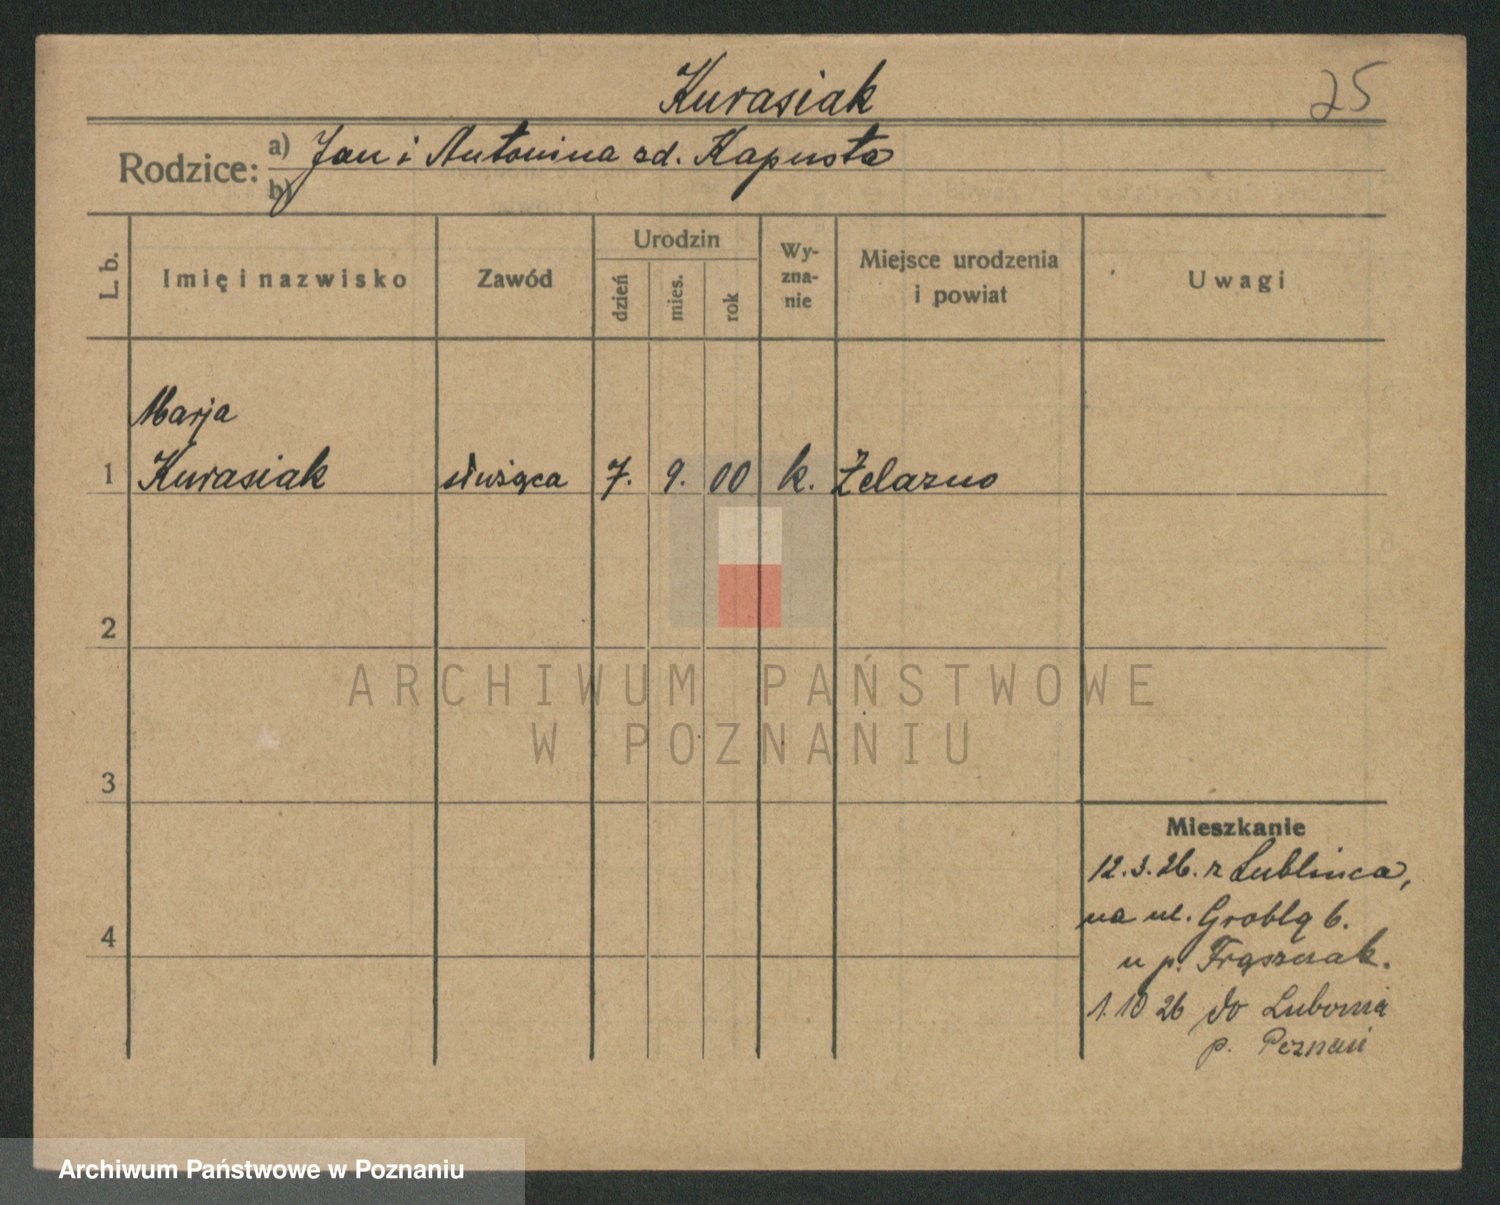 Kurasiak
25
Rodzice: a) Jan i Antonina zd. Kapusta
b)
L. b. Imię i nazwisko Zawód Urodzin dzień mies. rok Wy-zna-nie Miejsce urodzenia i powiat Uwagi
Marja
1 Kurasiak służąca 7. 9. 00 k. Żelazno
2
ARCHIWUM PAŃSTWOWE
W POZNANIU
3
Mieszkanie
12.3.26. z Lublinca,
na ul. Groblą 6.
4
u p. Frąszczak.
1.10 26 do Lubonia
p. Poznań
Archiwum Państwowe w Poznaniu